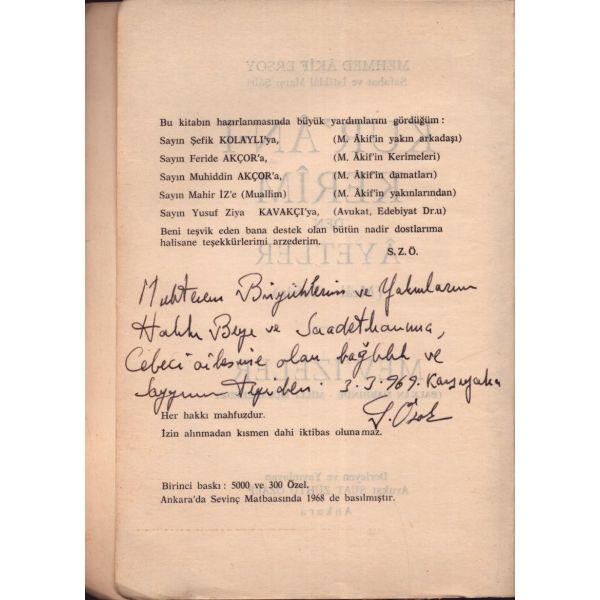 Bu kitabın hazırlanmasında büyük yardımlarını gördüğüm :
Sayın Şefik KOLAYLI'ya, (M. Âkif'in yakın arkadaşı)
Sayın Feride AKÇOR'a, (M. Âkif'in Kerimeleri)
Sayın Muhiddin AKÇOR'a, (M. Âkif'in damatları)
Sayın Mahir İZ'e (Muallim) (M. Âkif'in yakınlarından)
Sayın Yusuf Ziya KAVAKÇI'ya, (Avukat, Edebiyat Dr.u)
Beni teşvik eden bana destek olan bütün nadir dostlarıma
halisane teşekkürlerimi arzederim.
S.Z.Ö.
Muhterem Büyüklerim ve Yakınlarım
Hakkı Beye ve Saadethanıma,
Cebeci ailesine olan bağlılık ve
3.3.969. Karşıyaka
Her hakkı mahfuzdur.
İzin alınmadan kısmen dahi iktibas olunamaz.
Birinci baskı : 5000 ve 300 Özel.
Ankara'da Sevinç Matbaasında 1968 de basılmıştır.